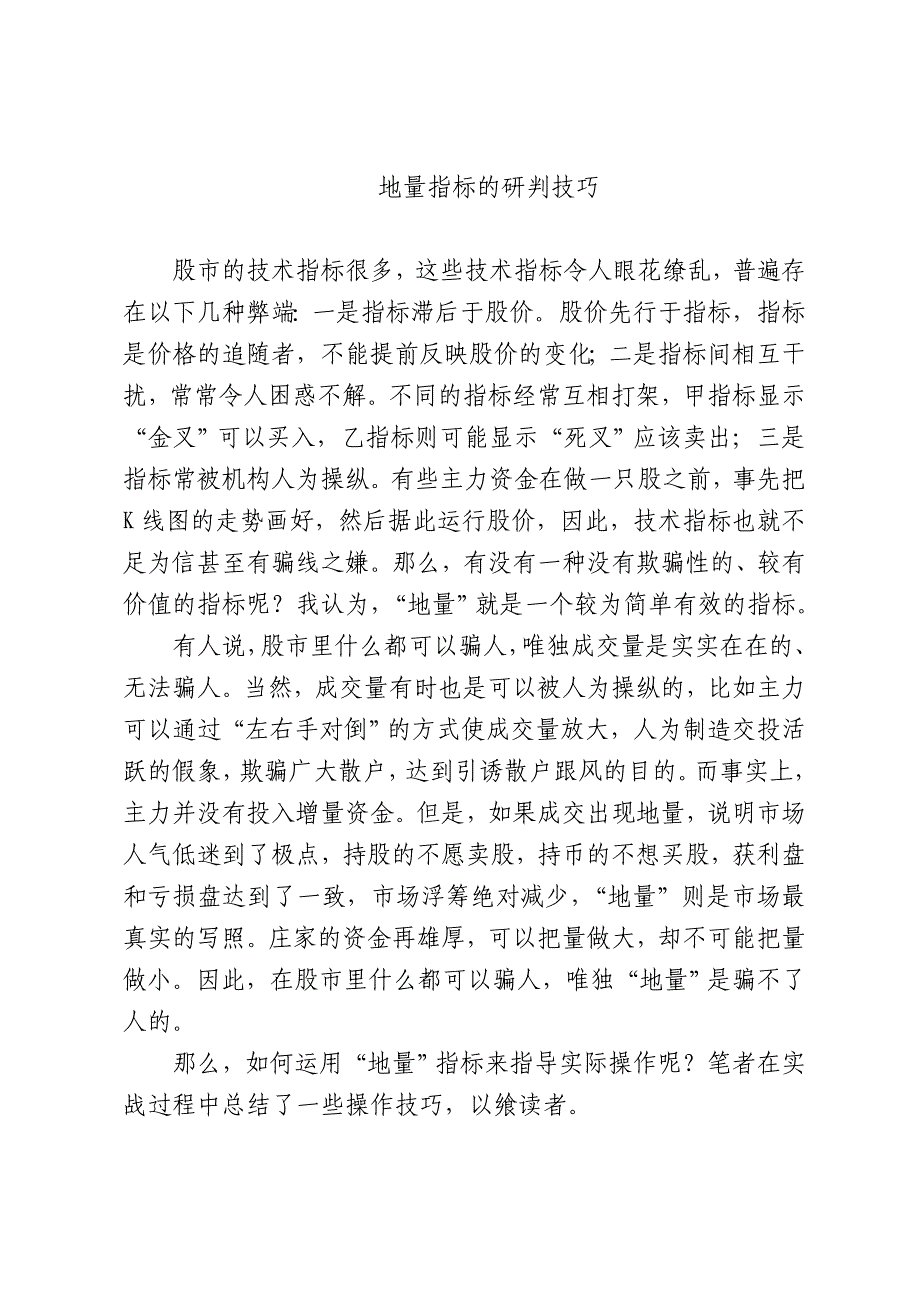 地量指标的研判技巧
股市的技术指标很多，这些技术指标令人眼花缭乱，普遍存
在以下几种弊端：一是指标滞后于股价。股价先行于指标，指标
是价格的追随者，不能提前反映股价的变化；二是指标间相互干
扰，常常令人困惑不解。不同的指标经常互相打架，甲指标显示
“金叉”可以买入，乙指标则可能显示“死叉”应该卖出；三是
指标常被机构人为操纵。有些主力资金在做一只股之前，事先把
K 线图的走势画好，然后据此运行股价，因此，技术指标也就不
足为信甚至有骗线之嫌。那么，有没有一种没有欺骗性的、较有
价值的指标呢？我认为，“地量”就是一个较为简单有效的指标。
有人说，股市里什么都可以骗人，唯独成交量是实实在在的、
无法骗人。当然，成交量有时也是可以被人为操纵的，比如主力
可以通过“左右手对倒”的方式使成交量放大，人为制造交投活
跃的假象，欺骗广大散户，达到引诱散户跟风的目的。而事实上，
主力并没有投入增量资金。但是，如果成交出现地量，说明市场
人气低迷到了极点，持股的不愿卖股，持币的不想买股，获利盘
和亏损盘达到了一致，市场浮筹绝对减少，“地量”则是市场最
真实的写照。庄家的资金再雄厚，可以把量做大，却不可能把量
做小。因此，在股市里什么都可以骗人，唯独“地量”是骗不了
人的。
那么，如何运用“地量”指标来指导实际操作呢？笔者在实
战过程中总结了一些操作技巧，以飨读者。